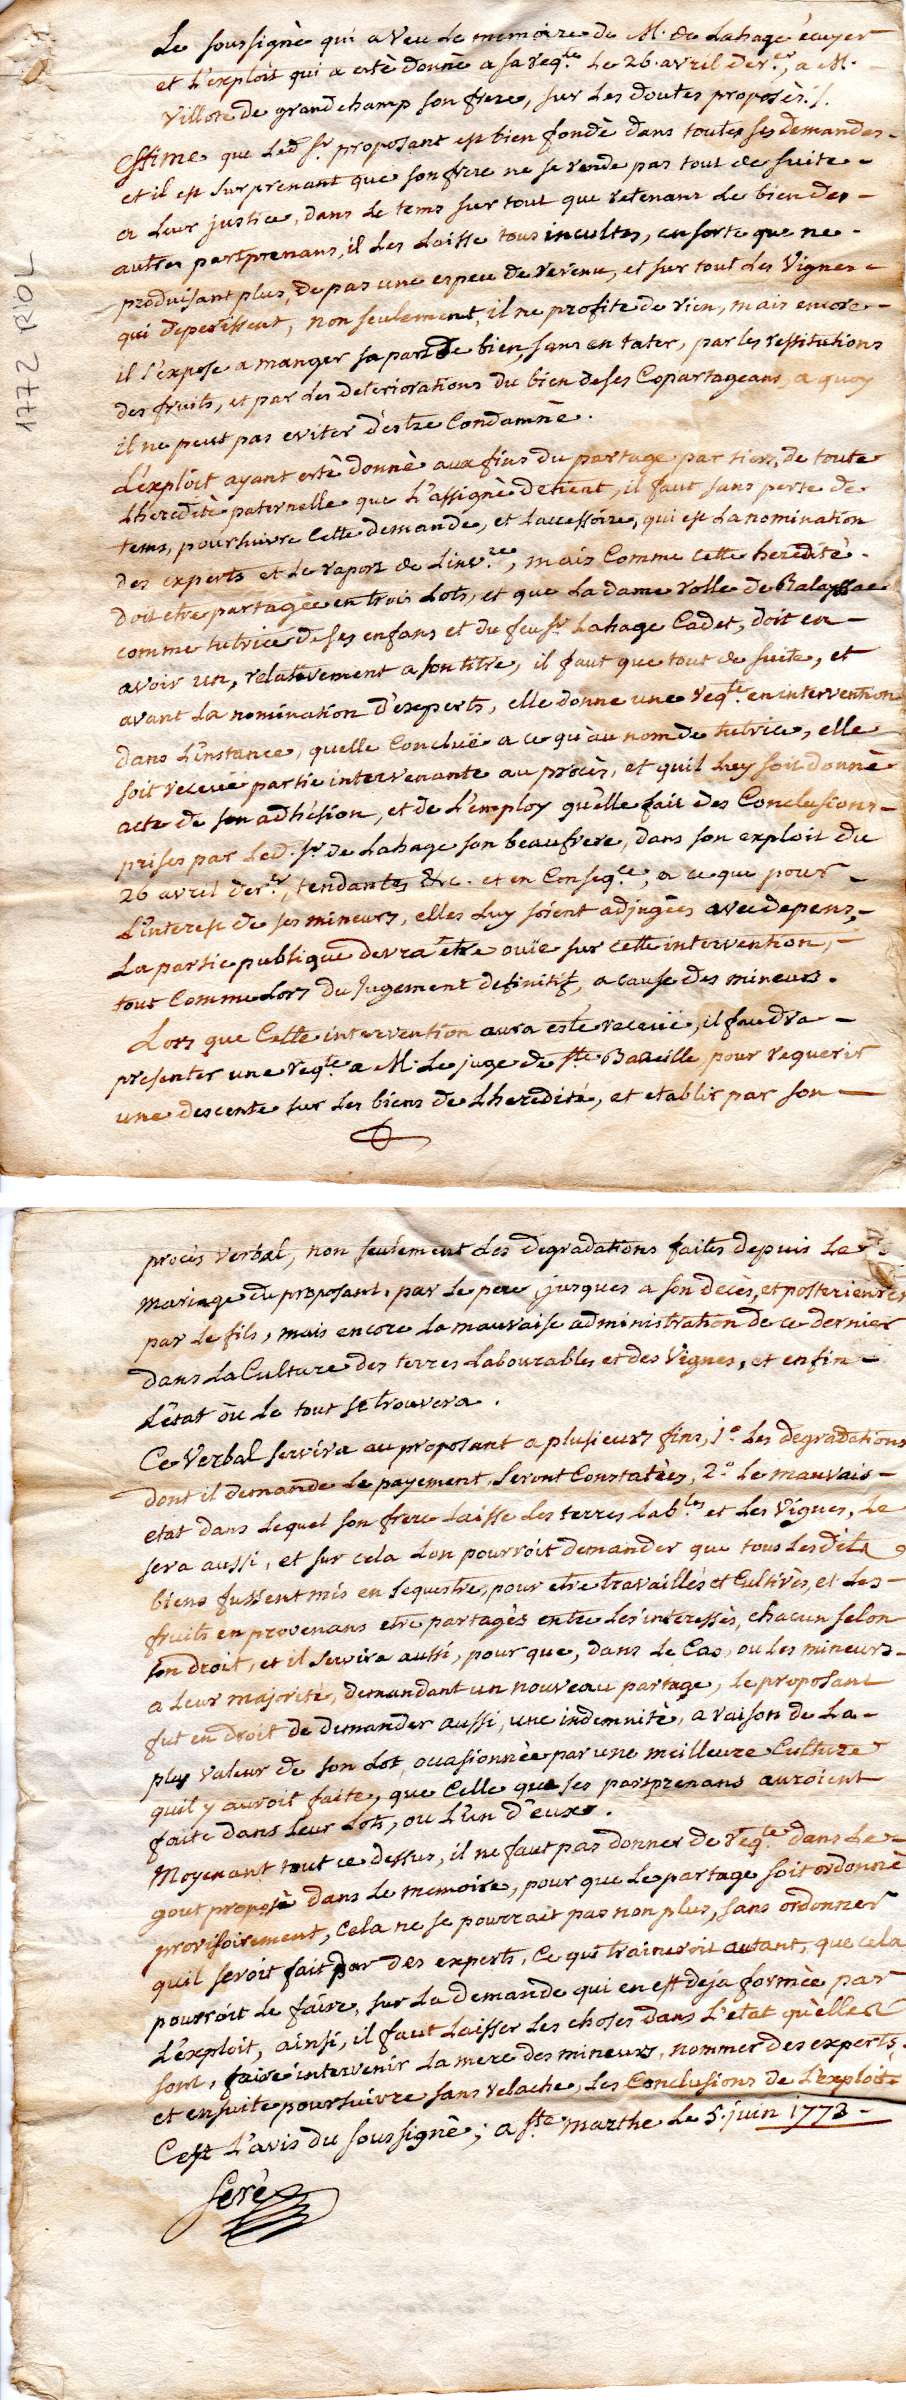 Le soussignè qui a veu Le memoire de M.r de Lahage écuyer
et L'exploit qui a estè donnè a sa reqte. Le 26. avril der.er, a M.
Villote de grandchamp son frere, sur Les doutes proposès ./.
Estime que Led. Sr. proposant est bien fondè dans toutes ses demandes
et il est surprenant que son frere ne se rende pas tout de suite
a Leur justice, dans Le tems sur tout que retenant Le bien des
autres partprenans, il Les Laisse tous incultes, en sorte que ne
produisant plus, de pas une espece de revenu, et sur tout Les Vignes
qui deperissent, non seulement, il ne profite de rien, mais encore
il s'expose a manger sa part de bien, sans en tater, par les restitutions
des fruits, et par Les deteriorations du bien de ses Copartageans, a quoy
il ne peut pas eviter d'estre Condamnè.
L'exploit ayant estè donnè aux fins du partage par tiers, de toute
L'heredité paternelle que L'assignè detient, il faut sans perte de
tems, poursuivre Cette demande, et L'accessoire, qui est La nomination
des experts et Le raport de L'inv.re, mais Comme cette heredité
doit etre partagée en trois Lots, et que La dame rolle de Balayssac
comme tutrice de ses enfans et du feu Sr. Lahage Cadet, doit en
avoir un, relativement a son titre, il faut que tout de suite, et
avant La nomination d'experts, elle donne une reqte. en intervention
dans L'instance, quelle Concluë a ce qu'au nom de tutrice, elle
soit receuë partie intervenante au procès, et quil Luy soit donnè
acte de son adhésion, et de L'employ qu'elle fait des Conclusions
prises par Led. Sr. de Lahage son beaufrere, dans son exploit du
26 avril der.er, tendantes &c. et en Conseq.ce, a ce que pour
L'interest de ses mineurs, elles Luy soient adjugées avec depens,
La partie publique devra etre ouïe sur cette intervention,
tout Comme Lors du Jugement definitif, a cause des mineurs.
Lors que Cette intervention aura esté receuë, il faudra
presenter une reqte. a M. Le juge de Ste. Bazeille pour requerir
une descente sur Les biens de L'heredité, et etablir par son
procès Verbal, non seulement Les degradations faites depuis Le
mariage du proposant, par Le pere, jusques a son decès, et posterieures
par Le fils, mais encore La mauvaise administration de ce dernier
dans La Culture des terres Labourables et des Vignes, et enfin
L'etat ou Le tout se trouvera.
Ce Verbal servira au proposant a plusieurs fins, 1.º Les degradations
dont il demande Le payement Seront Constatées, 2.º Le mauvais
etat dans Lequel son frere Laisse Les terres Lab.les et Les Vignes, Le
sera aussi, et sur cela Lon pourroit demander que tous Lesdits
biens fussent mis en sequestre, pour etre travaillés et Cultivès, et Les
fruits en provenans etre partagès entre Les interessès, chacun selon
son droit, et il servira aussi, pour que, dans Le Cas, ou Les mineurs
a Leur majorité, demandant un nouveau partage, Le proposant
fut en droit de demander aussi, une indemnité, a raison de La
plus Valeur de son Lot, ocasionnée par une meilleure Culture
quil y auroit faite, que Celle que ses partprenans auroient
faite dans Leur Lots, ou L'un d'eux.
Moyenant tout ce dessus, il ne faut pas donner de reqte. dans Le
gout proposè dans Le memoire, pour que Le partage soit ordonnè
provisoirement, Cela ne se pourrait pas non plus, sans ordonner
quil seroit fait par des experts, Ce qui traineroit autant, que cela
pourroit Le faire, sur La demande qui en est deja formèe par
L'exploit, ainsi, il faut Laisser Les choses dans L'etat qu'elles
sont, faire intervenir La mere des mineurs, nommer des experts,
et ensuite poursuivre sans relache, Les Conclusions de L'exploit
C'est L'avis du soussignè; a Ste. marthe Le 5. juin 1773
Serè
1772 RIOL